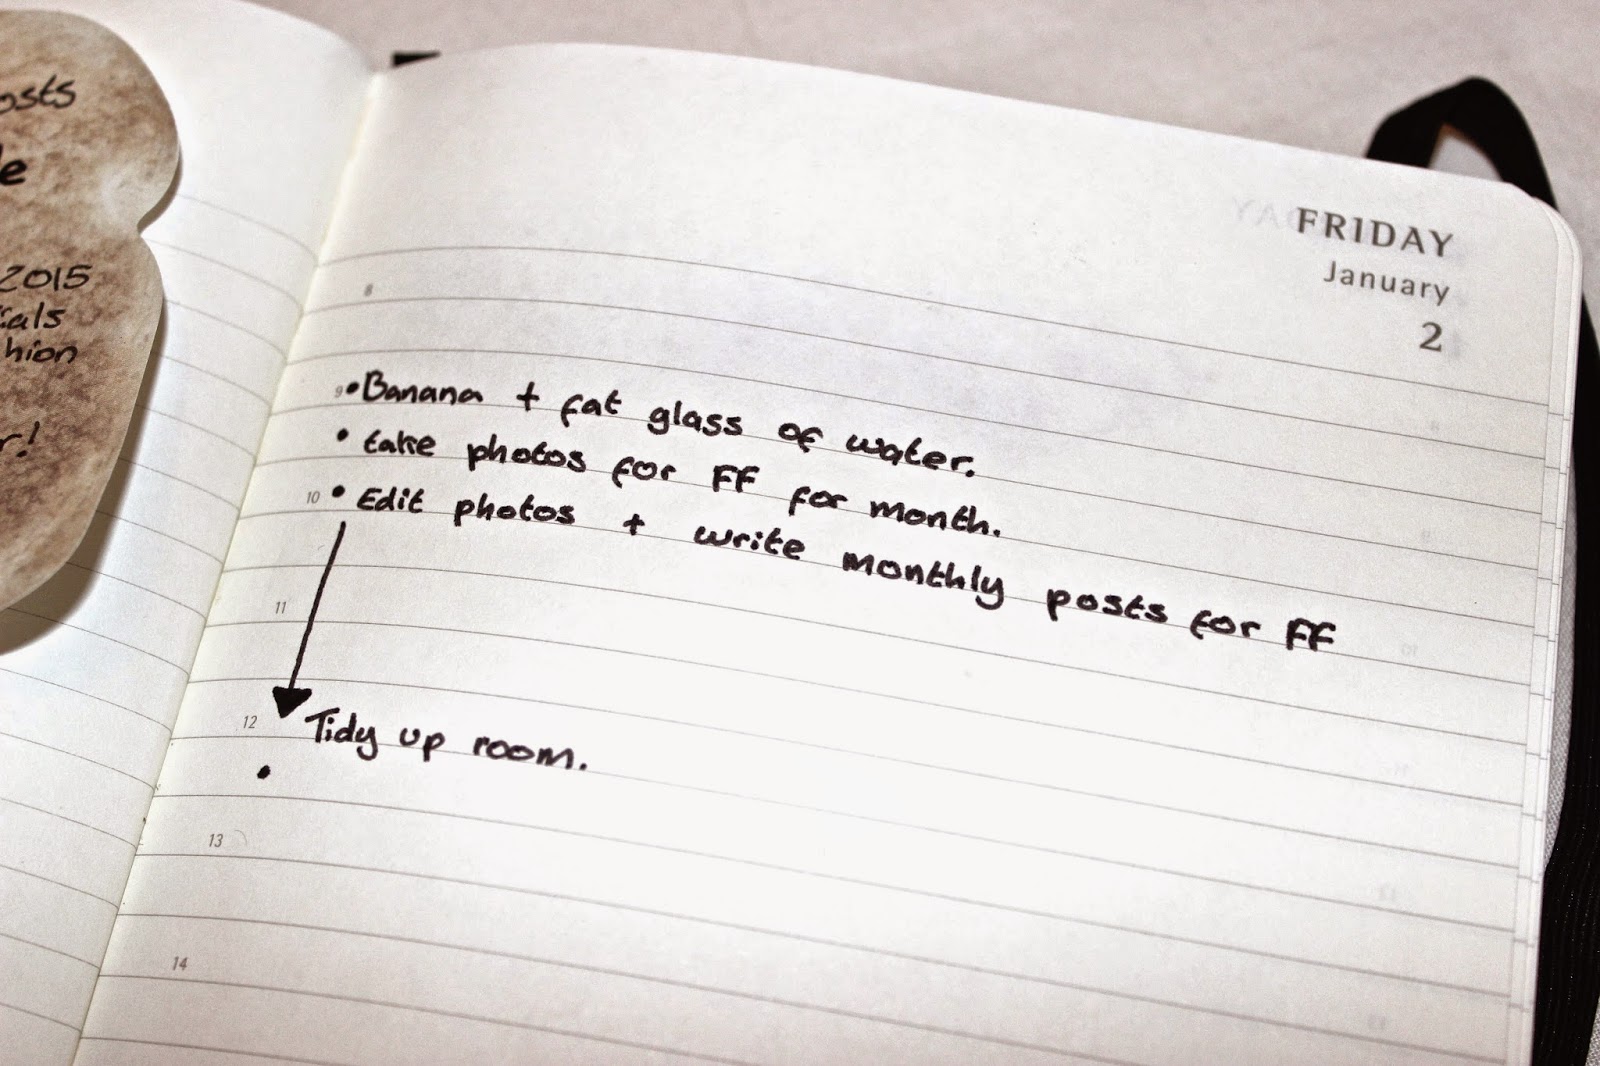 osts
e
2015
hion
r!
FRIDAY
January
2
8
9 •Banana + fat glass of water.
• take photos for FF for month.
10 • Edit photos + write monthly posts for FF
11
12 Tidy up room.
•
13
14